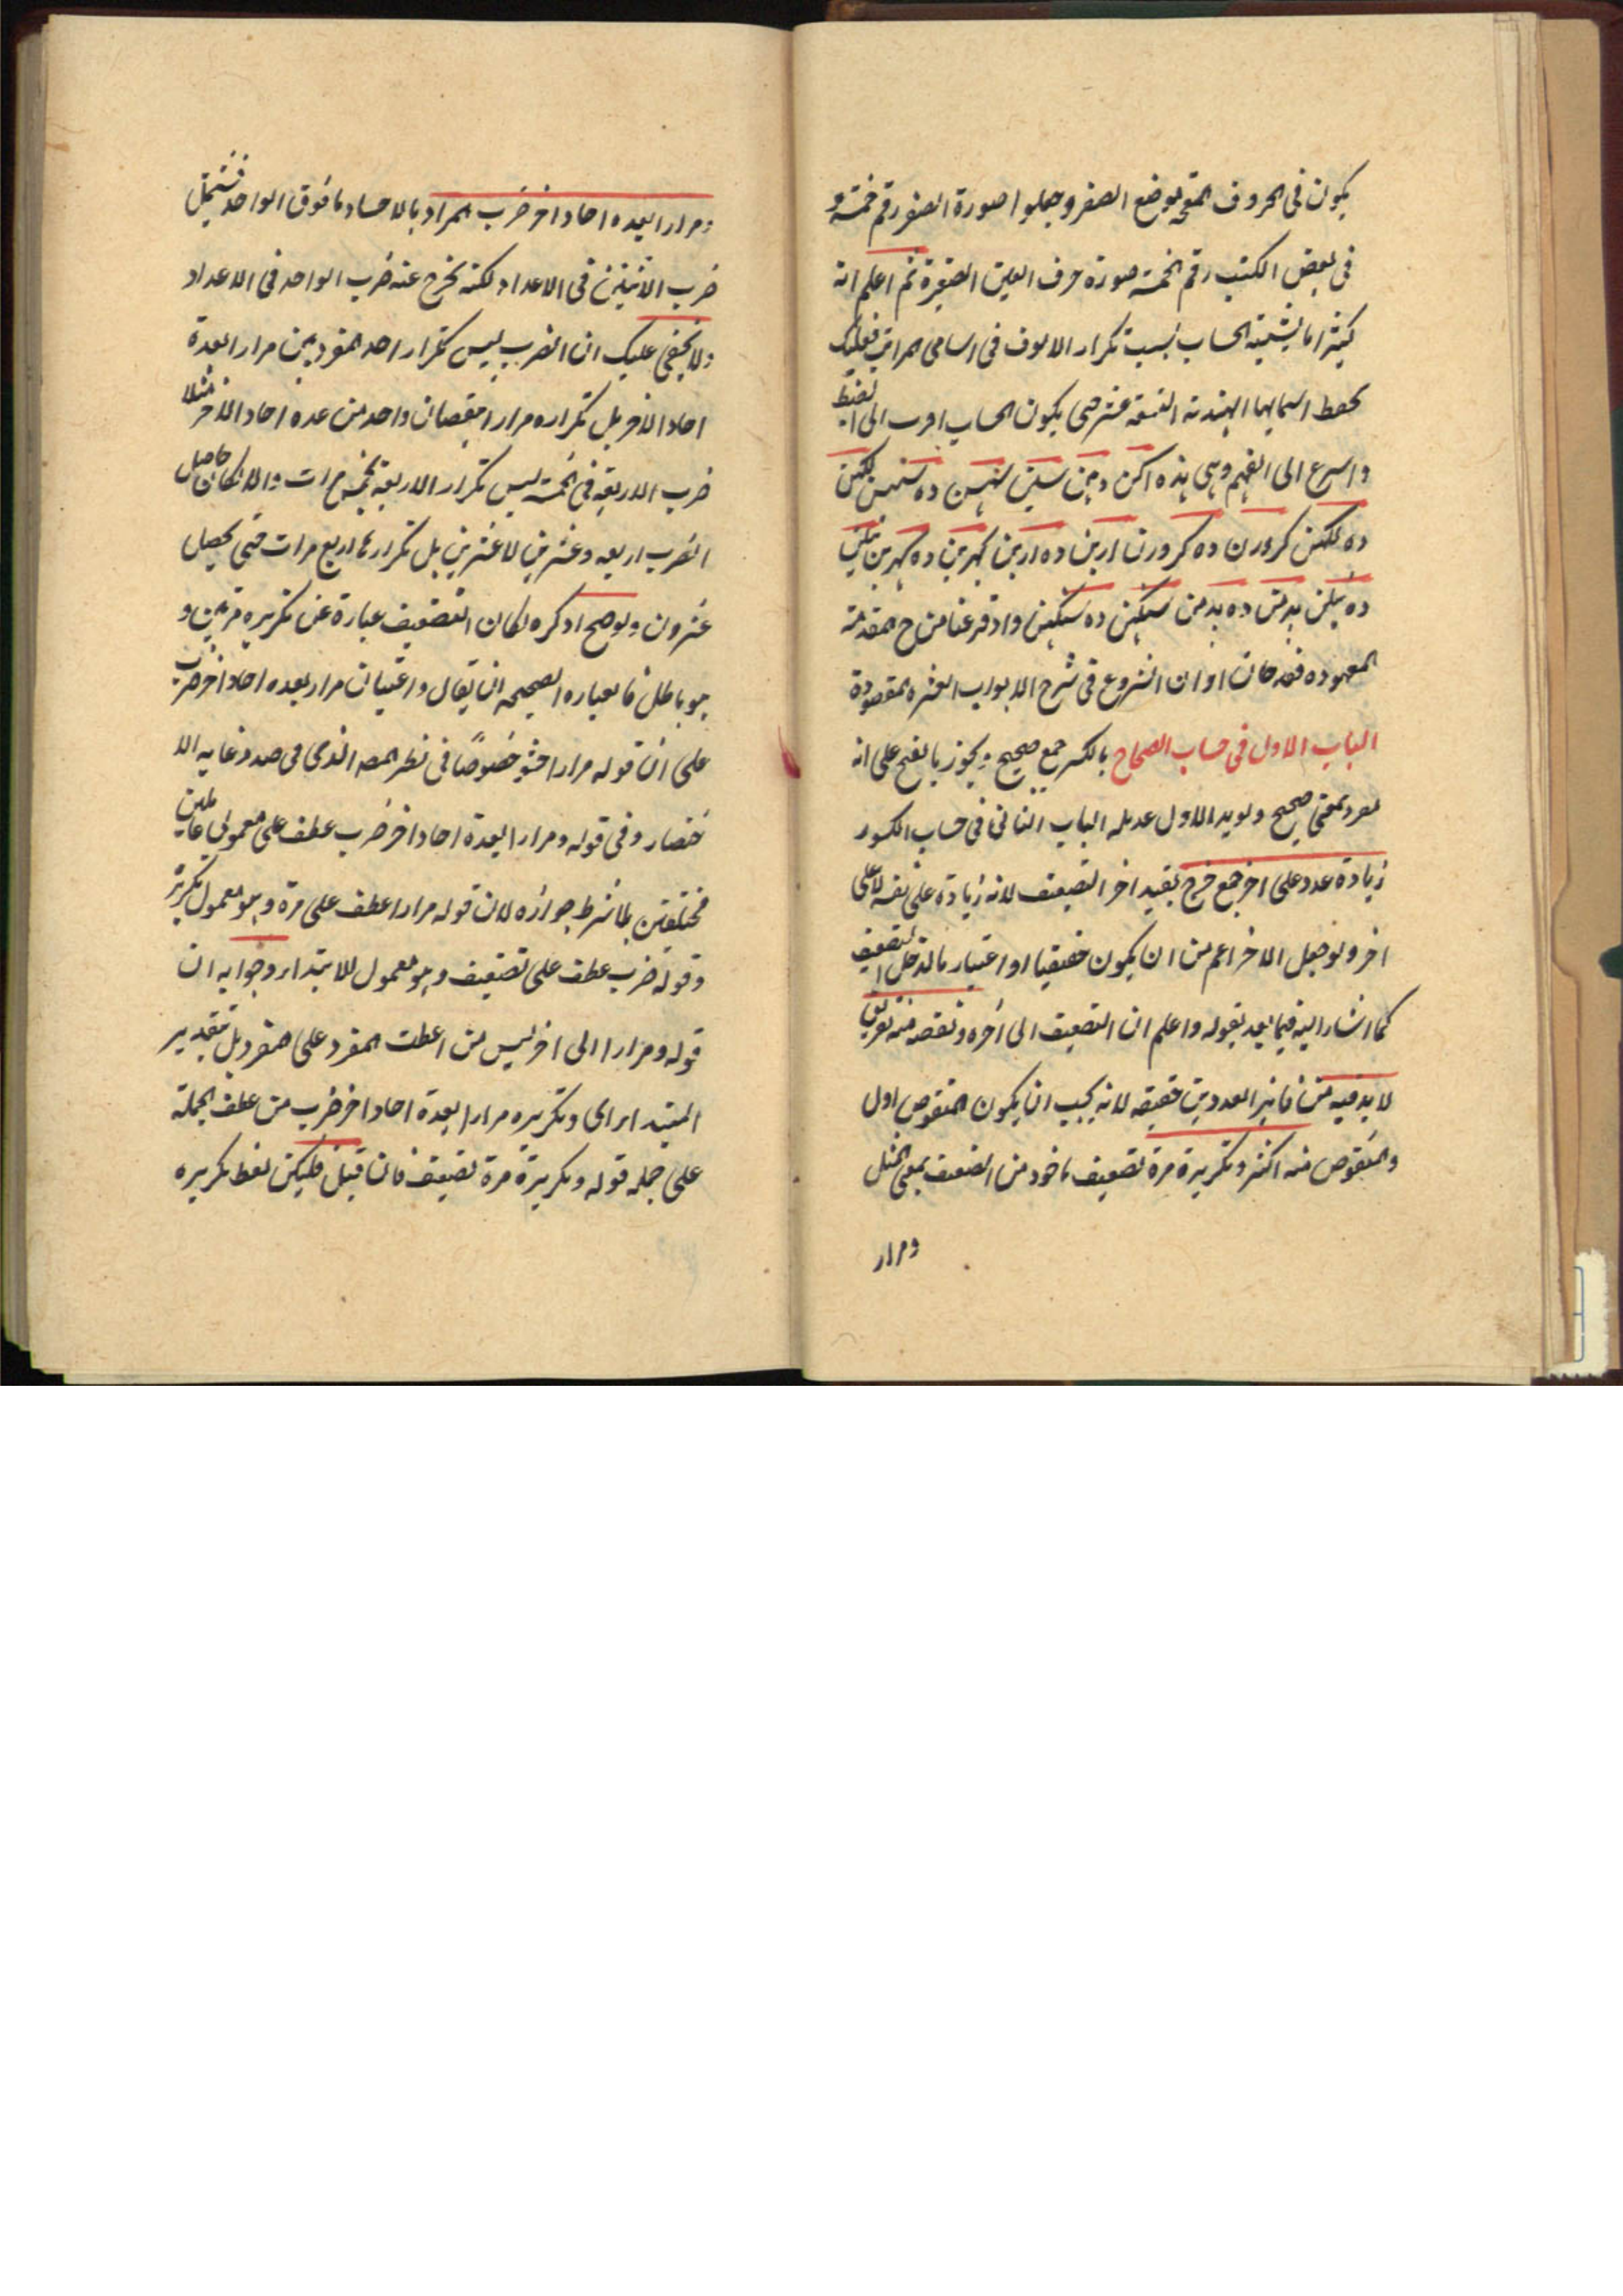 يكون فى الحروف المعجمه بوضع الصفر وجعلوا صورة الصفر رقم خمسة و
فى بعض الكتب رقم الخمسة صورة حرف العين الصغيرة ثم اعلم انه
كثيرا ما يشتبه الحساب بسبب تكرار الالوف فى اسامى المراتب فعليك
بحفظ اسمائها الهندية التسعة عشر حتى يكون الحساب اقرب الى الضبط
واسرع الى الفهم وهى هذه اكن دهن سين سهسن ده سهسن لكهن
ده لكهن كرورن ده كرورن اربن ده اربن كهربن ده كهربن نيلن
ده نيلن بدمن ده بدمن سنكهن ده سنكهن واذ فرغنا من شرح المقدمة
المعهوده فقد حان اوان الشروع فى شرح الابواب العشره المقصودة
الباب الاول فى حساب الصحاح بالكسر جمع صحيح ويجوز بالفتح على انه
مفرد بمعنى صحيح ويويد الاول عديله الباب الثانى فى حساب الكسور
زيادة عدد على اخر جمع خرج بقيد اخر التضعيف لانه زيادة على نفسه لا على
اخر ولو جعل الاخر اعم من ان يكون حقيقيا او اعتباريا لدخل التضعيف
كما اشار اليه فيما بعد بقوله واعلم ان التضعيف الى اخره ونقصه منه تفريق
لا بد فيه من تغاير العددين حقيقه لانه يجب ان يكون المنقوص اول
والمنقوص منه اكثر وتكريره مرة تضعيف ماخوذ من الضعف بمعنى المثل
ومرار
ومرارا بعده احاد اخر ضرب المراد بالاحاد ما فوق الواحد فيشتمل
ضرب الاثنين فى الاعداد لكنه يخرج عنه ضرب الواحد فى الاعداد
ولا يخفى عليك ان الضرب ليس تكرار احد المفردين مرارا بعدة
احاد الاخر بل تكراره مرارا بنقصان واحد من عده احاد الاخر مثلا
ضرب الاربعه فى الخمسة ليس تكرار الاربعه خمس مرات والا لكان حاصل
الضرب اربعه وعشرين لا عشرين بل تكرارها اربع مرات حتى يحصل
عشرون ولو صح ما ذكره لكان التضعيف عبارة عن تكريره مرتين و
هو باطل فالعباره الصحيحه ان يقال واعتبار مرار بعده احاد اخر ضرب
على ان قوله مرارا حشو خصوصًا فى نظر المصه الذى فى صدد غايه الا
ختصار وفى قوله ومرارا بعدة احاد اخر ضرب عطف على معمولى عاملين
مختلفين بلا شرط جوازه لان قوله مرارا عطف على مرة وهو معمول تكريره
وقوله ضرب عطف على تضعيف وهو معمول للابتداء وجوابه ان
قوله ومرارا الى اخر ليس من اعطف المفرد على المفرد بل بتقدير
المبتدا اى وتكريره مرارا بعدة احاد اخر ضرب من عطف الجملة
على جمله قوله وتكريرة مرة تضعيف فان قيل فليكن لفظ تكريره